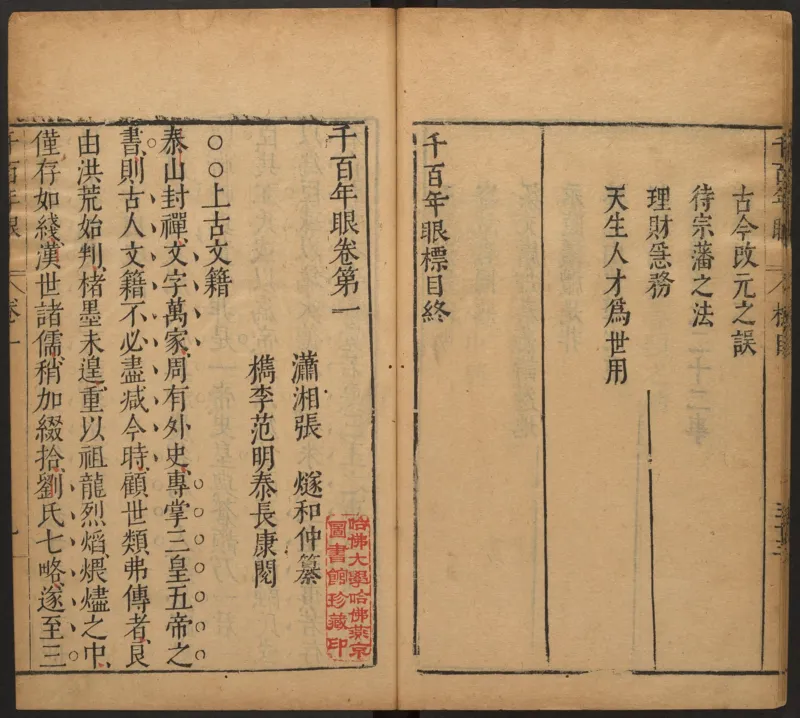 千百年眼 標目
古今改元之誤
待宗藩之法
理財急務
天生人才爲世用
千百年眼標目終
千百年眼卷第一
瀟湘張　燧和仲纂
檇李范明泰長康閱
哈佛大學哈佛燕京
圖書館珍藏印
○○上古文籍
泰山封禪文字萬家周有外史專掌三皇五帝之
書則古人文籍不必盡减今時顧世類弗傳者良
由洪荒始判楮墨未遑重以祖龍烈熖煨燼之中
僅存如綫漢世諸儒稍加綴拾劉氏七略遂至三
千百年眼 卷一